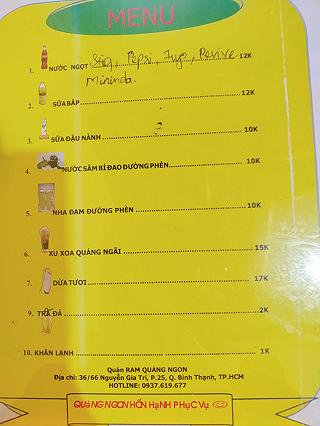 MENU
1. NƯỚC NGỌT Stig, Pepsi, Fuze, Revive 12K
Mirinda.
2. SỮA BẮP 12K
3. SỮA ĐẬU NÀNH 10K
4. NƯỚC SÂM BÍ ĐAO ĐƯỜNG PHÈN 10K
5. NHA ĐAM ĐƯỜNG PHÈN 10K
6. XU XOA QUẢNG NGÃI 15K
7. DỪA TƯƠI 17K
9. TRÀ ĐÁ 2K
10. KHĂN LẠNH 1K
Quán RAM QUẢNG NGON
Địa chỉ: 36/66 Nguyễn Gia Trí, P.25, Q. Bình Thạnh, TP.HCM
HOTLINE: 0937.619.677
QUảNG NGON HÂN HẠNH PHụC Vụ